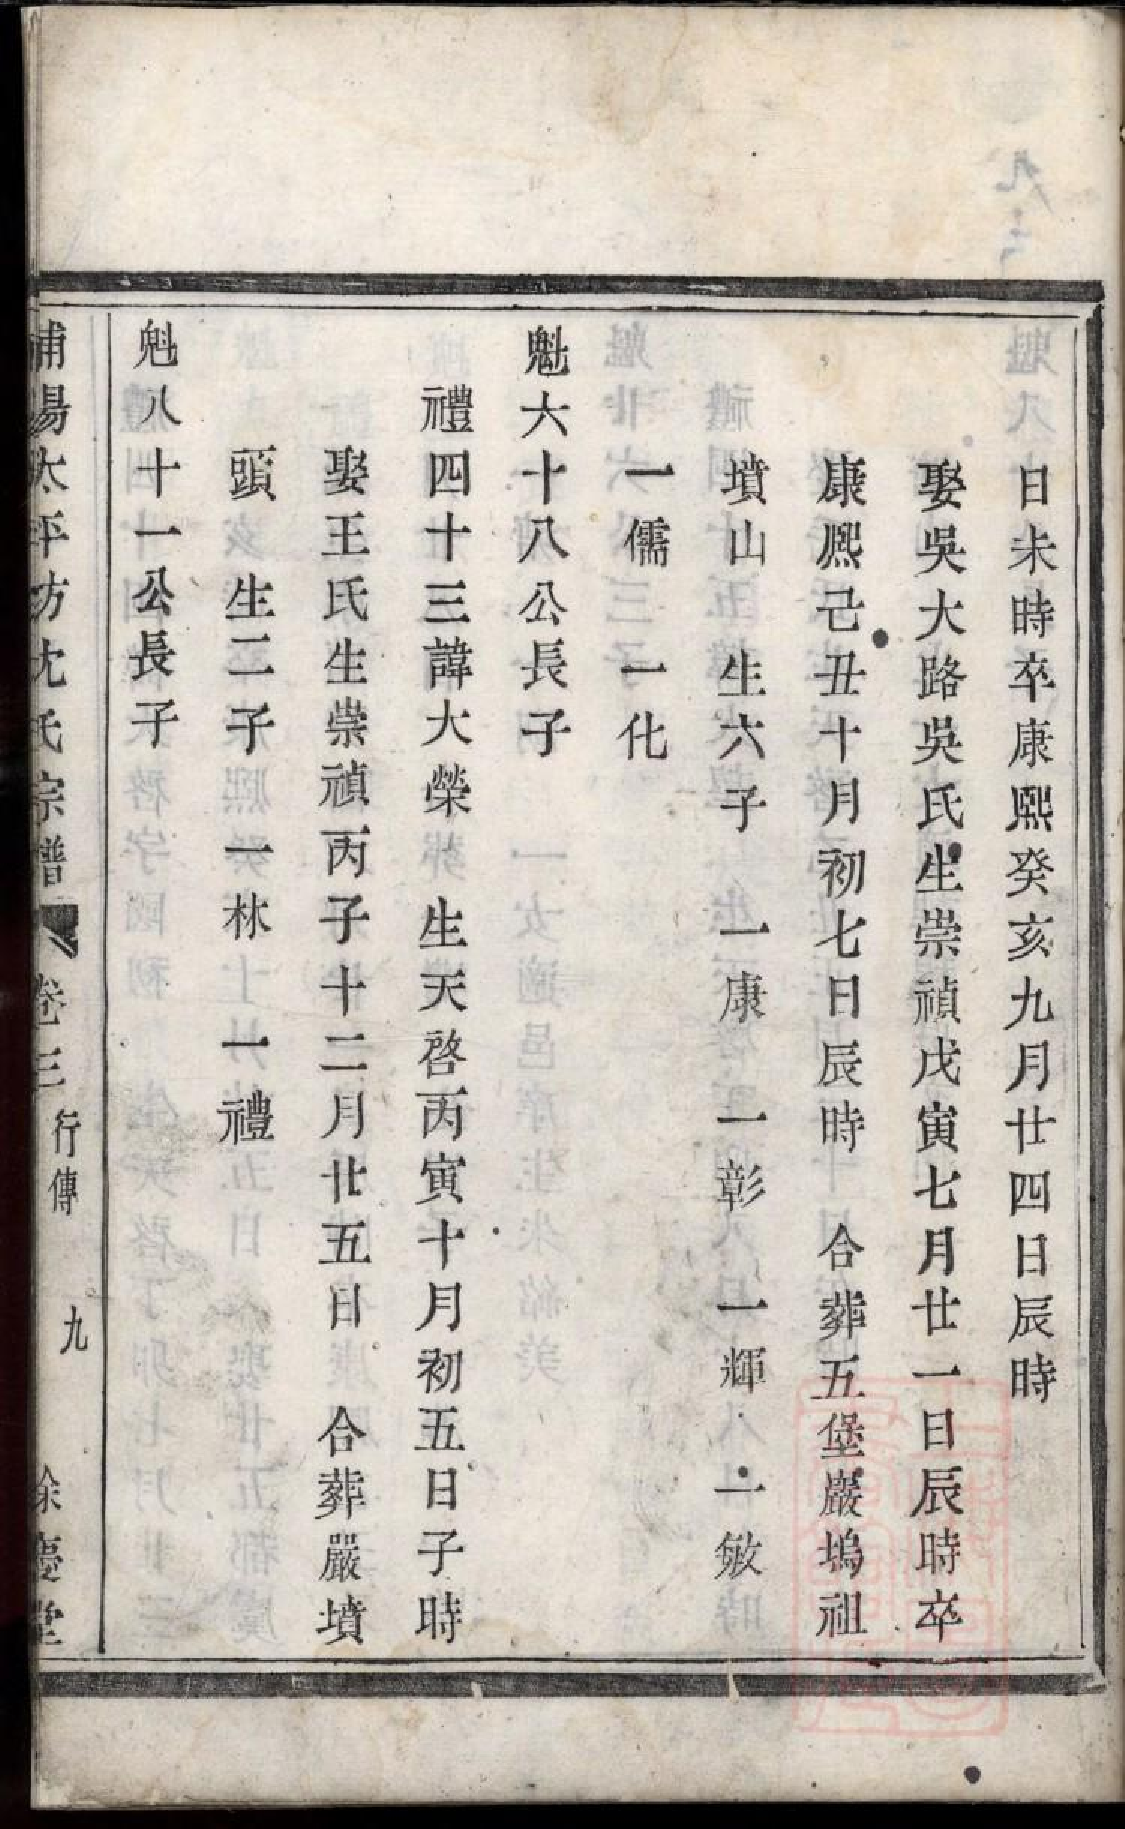 日未時卒康熙癸亥九月廿四日辰時
娶吳大路吳氏生崇禎戊寅七月廿一日辰時卒
康熙己丑十月初七日辰時　合葬五堡嚴塢祖
墳山　生六子　一康　一彰　一輝　一敏
一儒　一化
魁六十八公長子
禮四十三諱大榮　生天啓丙寅十月初五日子時
娶王氏生崇禎丙子十二月廿五日　合葬嚴墳
頭　生二子　一林　一禮
魁八十一公長子
浦陽太平坊沈氏宗譜　卷三　行傳　九　余慶堂